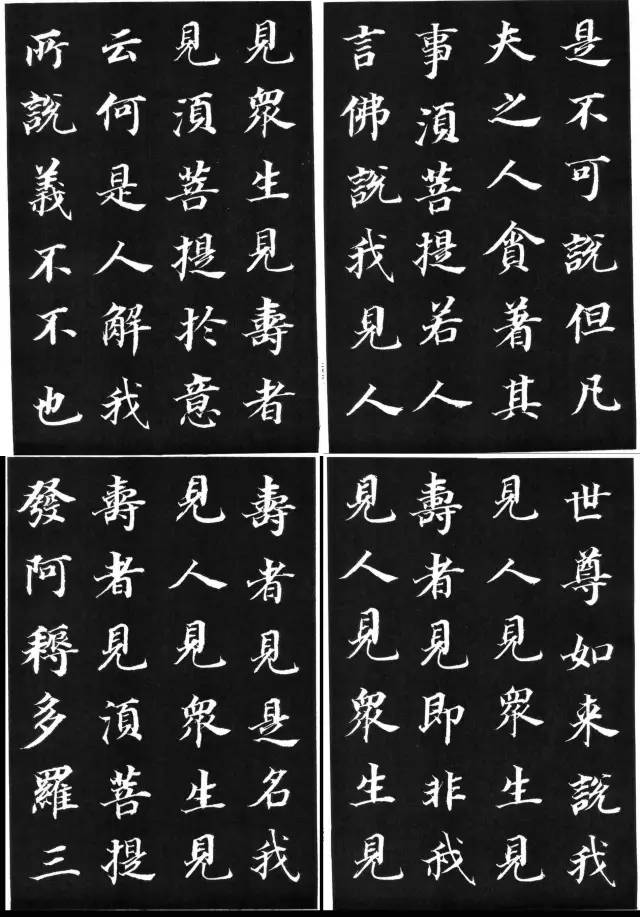 是不可說但凡
夫之人貪著其
事須菩提若人
言佛說我見人
見眾生見壽者
見須菩提於意
云何是人解我
所說義不不也
世尊如来說我
見人見眾生見
壽者見即非我
見人見眾生見
壽者見是名我
見人見眾生見
壽者見須菩提
發阿耨多羅三